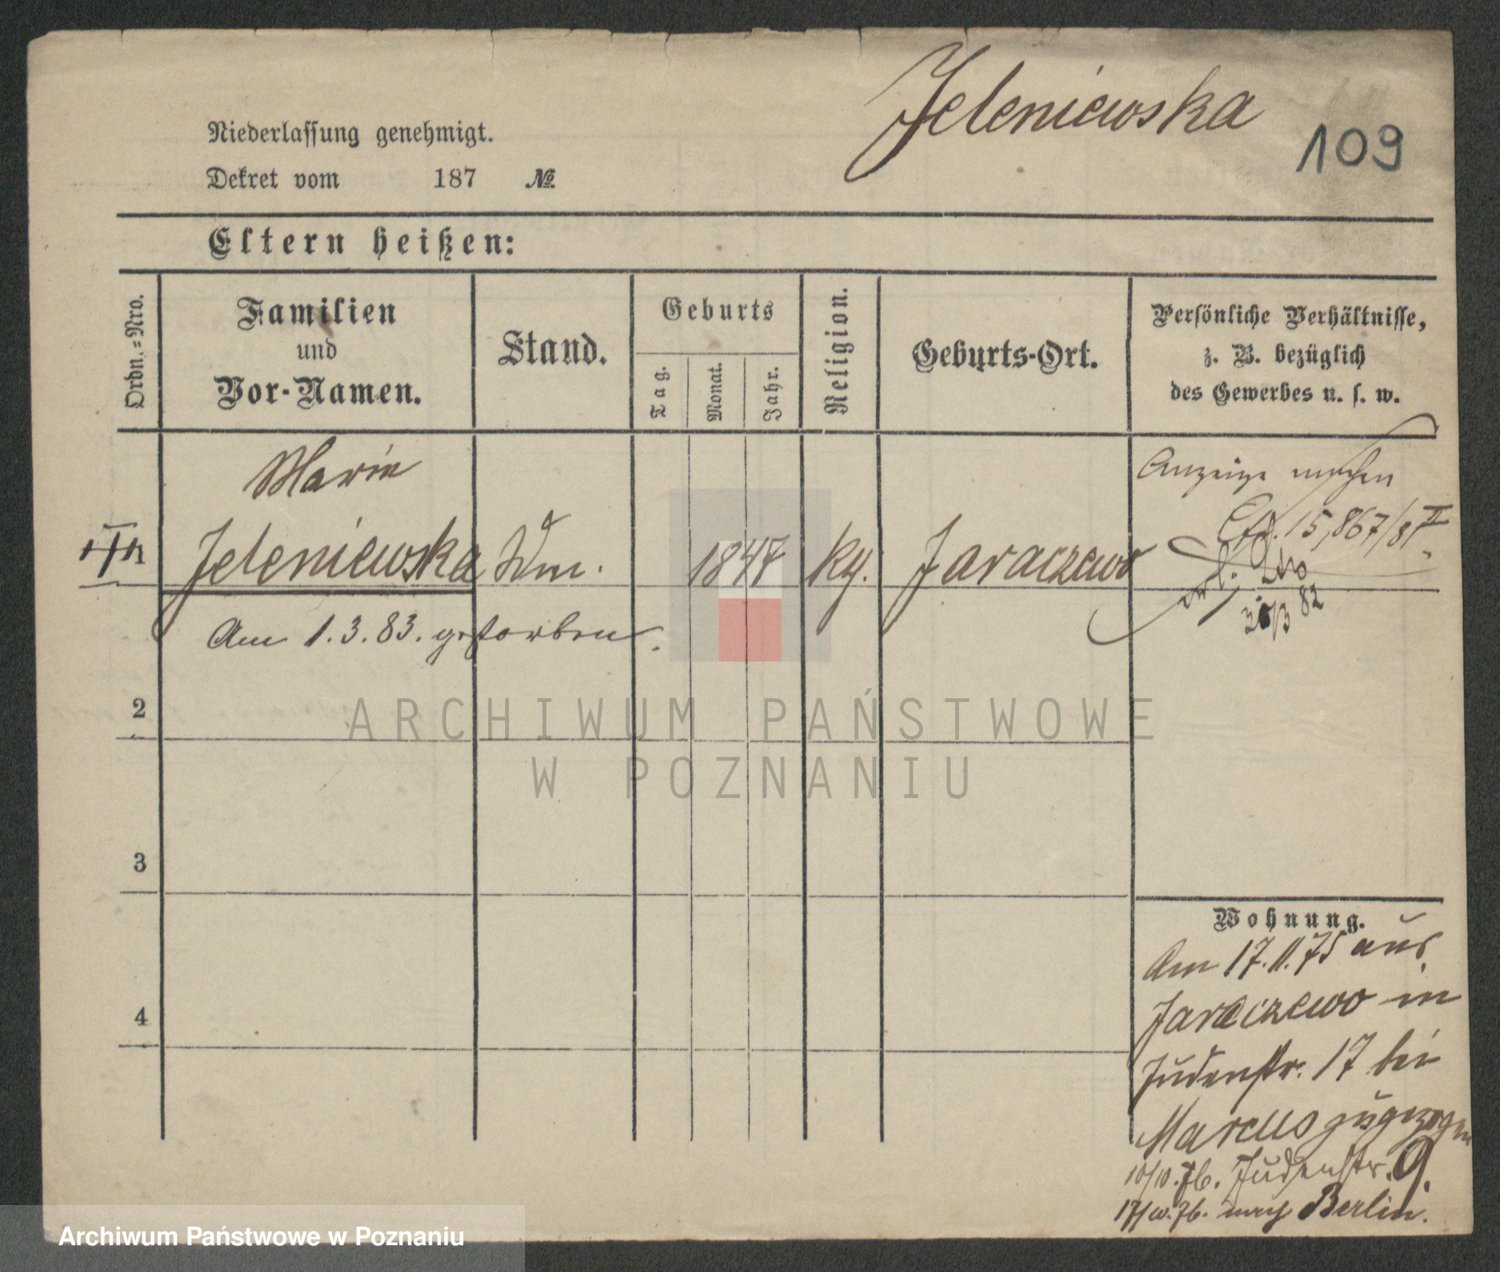 Jeleniewska
109
Niederlassung genehmigt.
Dekret vom 187 №
Eltern heißen:
Ordn.=Nro.
Familien
und
Vor-Namen.
Stand.
Geburts
Tag.
Monat.
Jahr.
Religion.
Geburts-Ort.
Persönliche Verhältnisse,
z. B. bezüglich
des Gewerbes u. s. w.
Marie
1 Jeleniewska 1847 Jaraczewo
Am 1.3.83. gestorben.
Anzeige machen
15,867/81
82
2
3
4
ARCHIWUM PAŃSTWOWE
W POZNANIU
Wohnung.
Am 17.11.75 aus
Jaraczewo in
Judenstr. 17 bei
Marcus zugezogen
10/10.76. Judenstr. 9.
17/10.76. nach Berlin.
Archiwum Państwowe w Poznaniu